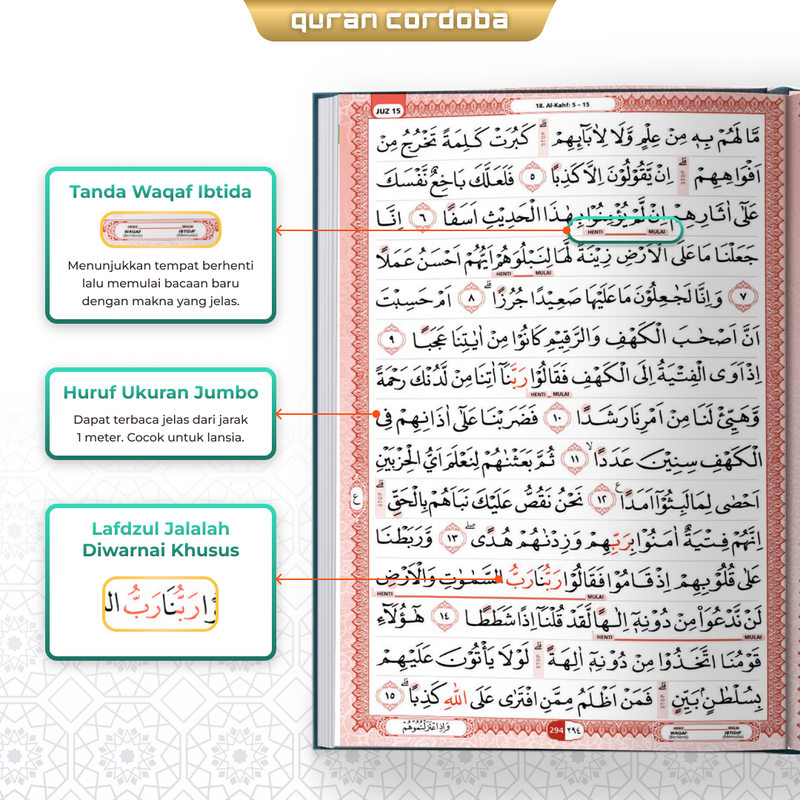 quran cordoba
JUZ 15
18. Al-Kahf: 5 – 15
مَّا لَهُمْ بِهٖ مِنْ عِلْمٍ وَّلَا لِاٰبَاۤىِٕهِمْۗ STOP كَبُرَتْ كَلِمَةً تَخْرُجُ مِنْ
اَفْوَاهِهِمْۗ STOP اِنْ يَّقُوْلُوْنَ اِلَّا كَذِبًا ٥ فَلَعَلَّكَ بَاخِعٌ نَّفْسَكَ
عَلٰٓى اٰثَارِهِمْ اِنْ لَّمْ يُؤْمِنُوْا بِهٰذَا الْحَدِيْثِ اَسَفًا ٦ اِنَّا
HENTI MULAI
جَعَلْنَا مَا عَلَى الْاَرْضِ زِيْنَةً لَّهَا لِنَبْلُوَهُمْ اَيُّهُمْ اَحْسَنُ عَمَلًا
HENTI MULAI
٧ وَاِنَّا لَجٰعِلُوْنَ مَا عَلَيْهَا صَعِيْدًا جُرُزًاۗ ٨ اَمْ حَسِبْتَ
اَنَّ اَصْحٰبَ الْكَهْفِ وَالرَّقِيْمِ كَانُوْا مِنْ اٰيٰتِنَا عَجَبًا ٩
اِذْ اَوَى الْفِتْيَةُ اِلَى الْكَهْفِ فَقَالُوْا رَبَّنَآ اٰتِنَا مِنْ لَّدُنْكَ رَحْمَةً
HENTI MULAI
وَّهَيِّئْ لَنَا مِنْ اَمْرِنَا رَشَدًا ١٠ فَضَرَبْنَا عَلٰٓى اٰذَانِهِمْ فِى
الْكَهْفِ سِنِيْنَ عَدَدًاۙ ١١ ثُمَّ بَعَثْنٰهُمْ لِنَعْلَمَ اَيُّ الْحِزْبَيْنِ
اَحْصٰى لِمَا لَبِثُوْٓا اَمَدًا ࣖ ١٢ نَحْنُ نَقُصُّ عَلَيْكَ نَبَاَهُمْ بِالْحَقِّۗ STOP
ع
اِنَّهُمْ فِتْيَةٌ اٰمَنُوْا بِرَبِّهِمْ وَزِدْنٰهُمْ هُدًىۖ ١٣ وَّرَبَطْنَا
عَلٰى قُلُوْبِهِمْ اِذْ قَامُوْا فَقَالُوْا رَبُّنَا رَبُّ السَّمٰوٰتِ وَالْاَرْضِ
MULAI HENTI
لَنْ نَّدْعُوَا۟ مِنْ دُوْنِهٖٓ اِلٰهًا لَّقَدْ قُلْنَآ اِذًا شَطَطًا ١٤ هٰٓؤُلَاۤءِ
HENTI MULAI
قَوْمُنَا اتَّخَذُوْا مِنْ دُوْنِهٖٓ اٰلِهَةًۗ STOP لَوْلَا يَأْتُوْنَ عَلَيْهِمْ
بِسُلْطٰنٍۢ بَيِّنٍۗ STOP فَمَنْ اَظْلَمُ مِمَّنِ افْتَرٰى عَلَى اللّٰهِ كَذِبًاۗ ١٥
وَاِذِ اعْتَزَلْتُمُوْهُمْ
294 ٢٩٤
HENTI WAQAF (Berhenti) MULAI IBTIDA' (Memulai)
Tanda Waqaf Ibtida
HENTI WAQAF (Berhenti) MULAI IBTIDA' (Memulai)
Menunjukkan tempat berhenti
lalu memulai bacaan baru
dengan makna yang jelas.
Huruf Ukuran Jumbo
Dapat terbaca jelas dari jarak
1 meter. Cocok untuk lansia.
Lafdzul Jalalah
Diwarnai Khusus
وْا رَبُّنَا رَبُّ ال